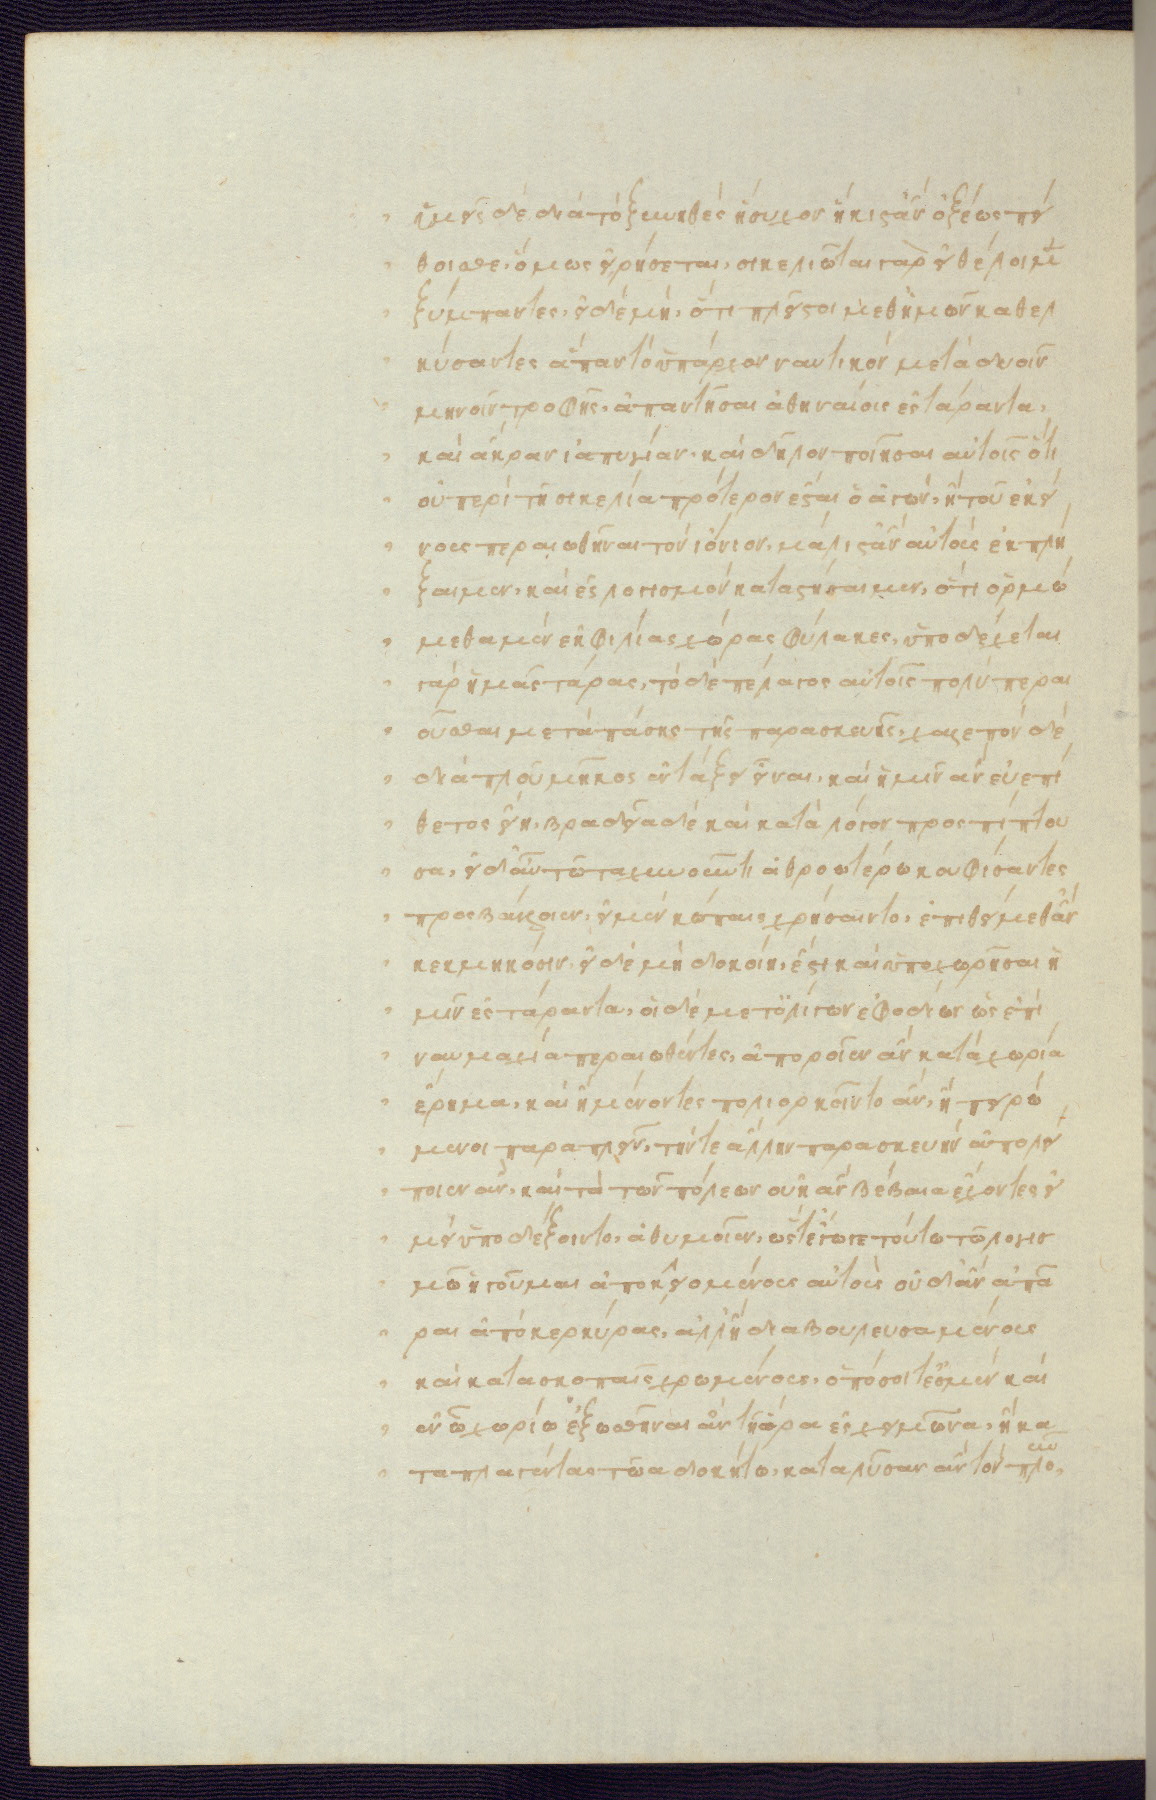 ὑμεῖς δὲ διὰ τὸ ξύνηθες ἥσυχον ἥκιστ' ἂν ὀξέως πεί
θοισθε, ὅμως εἰρήσεται, σικελιῶται γὰρ εἰ θέλοιμεν
ξύμπαντες, εἰ δὲ μὴ, ὅτι πλεῖστοι μεθ' ἡμῶν καθελ
κύσαντες ἅπαν τὸ ὑπάρχον ναυτικὸν μετὰ δυοῖν
μηνοῖν τροφῆς, ἀπαντῆσαι ἀθηναίοις ἐς τάραντα,
καὶ ἄκραν ἰαπυγίαν, καὶ δῆλον ποιῆσαι αὐτοῖς ὅτι
οὐ περὶ τῇ σικελία πρότερον ἔσται ὁ ἀγὼν, ἢ τοῦ ἐκεί
νοις περαιωθῆναι τὸν ἰόνιον, μάλιστ' ἂν αὐτοὺς ἐκπλή
ξαιμεν, καὶ ἐς λογισμὸν καταστήσαιμεν, ὅτι ὁρμώ
μεθα μὲν ἐκ φιλίας χώρας φύλακες, ὑποδέχεται
γὰρ ἡμᾶς τάρας, τὸ δὲ πέλαγος αὐτοῖς πολὺ περαι
οῦσθαι μετὰ πάσης τῆς παρασκευῆς, χαλεπὸν δὲ
διὰ πλοῦ μῆκος ἐν τάξει εἶναι, καὶ ἡμῖν ἂν εὐεπί
θετος εἴη, βραδεῖα δὲ καὶ κατὰ λόγον προσπίπτου
σα, εἰ δ' αὖ τῷ ταχυναυτοῦντι ἀθροωτέρω κουφίσαντες
προσβάλοιεν, εἰ μὲν κώπαις χρήσαιντο, ἐπιθείμεθ' ἂν
κεκμηκόσιν, εἰ δὲ μὴ δοκοίη, ἔστι καὶ ὑποχωρῆσαι ἡ
μῖν ἐς τάραντα, οἱ δὲ μετ' ὀλίγων ἐφοδίων ὡς ἐπὶ
ναυμαχία περαιωθέντες, ἀποροῖεν ἂν κατὰ χωρία
ἔρημα, καὶ ἢ μένοντες πολιορκοῖντο ἂν, ἢ πειρώ
μενοι παραπλεῖν, τήν τε ἄλλην παρασκευὴν ἀπολεί
ποιεν ἂν, καὶ τὰ τῶν πόλεων οὐκ ἂν βέβαια ἔχοντες εἰ
μὲν ὑποδέξοιντο, ἀθυμοῖεν, ὥστε ἔγωγε τούτω τῷ λογισ
μῷ ἡγοῦμαι ἀποκλειομένους αὐτοὺς οὐδ' ἂν ἀπᾶ
ραι ἀπὸ κερκύρας, ἀλλ' ἢ διαβουλευσαμένους
καὶ κατασκοπαῖς χρωμένους, ὁπόσοι τ' ἐσμὲν καὶ
ἐν ᾧ χωρίω ἐξωσθῆναι ἂν τῇ ὥρα ἐς χειμῶνα, ἢ κα
ταπλαγέντας τῷ ἀδοκήτω, καταλῦσαι ἂν τὸν πλοῦν,